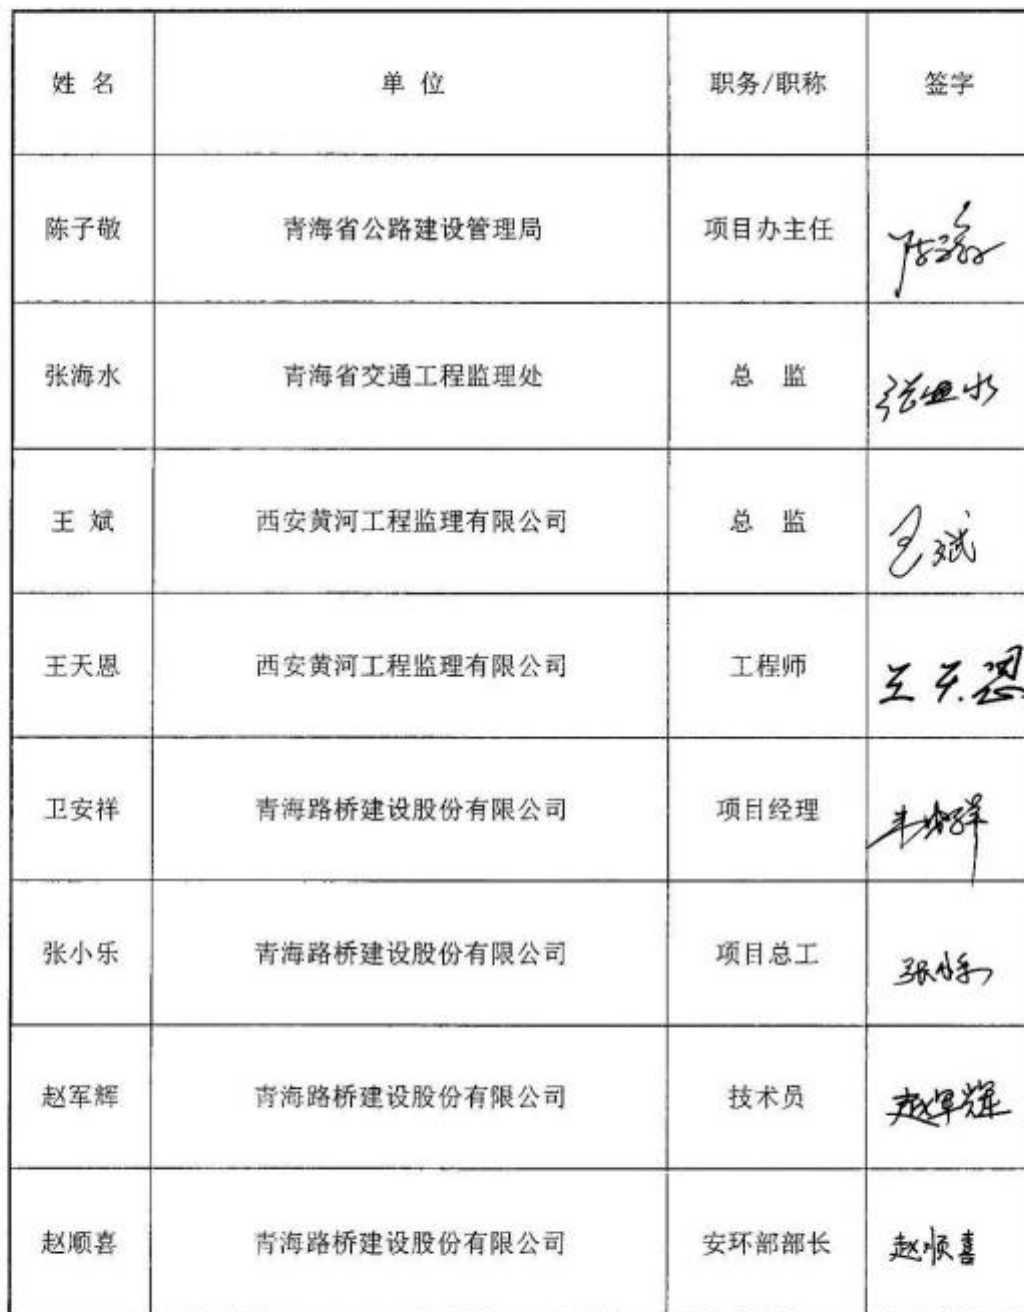 姓 名 单 位 职务/职称 签字
陈子敬 青海省公路建设管理局 项目办主任 陈子敬
张海水 青海省交通工程监理处 总 监 张海水
王 斌 西安黄河工程监理有限公司 总 监 王斌
王天恩 西安黄河工程监理有限公司 工程师 王天恩
卫安祥 青海路桥建设股份有限公司 项目经理
张小乐 青海路桥建设股份有限公司 项目总工 张小乐
赵军辉 青海路桥建设股份有限公司 技术员 赵军辉
赵顺喜 青海路桥建设股份有限公司 安环部部长 赵顺喜